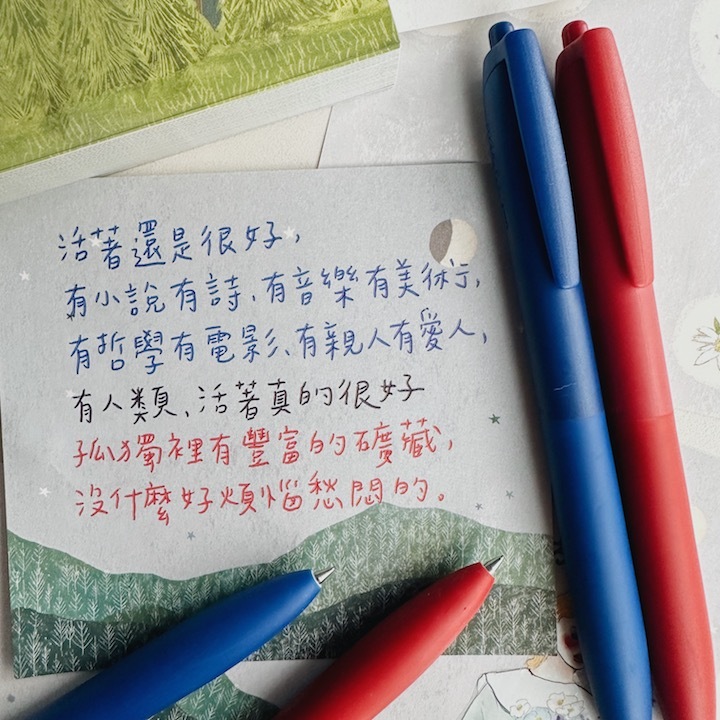 活著還是很好，
有小說有詩、有音樂有美術，
有哲學有電影、有親人有愛人，
有人類、活著真的很好
孤獨裡有豐富的礦藏，
沒什麼好煩惱愁悶的。